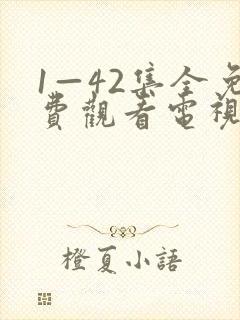 1—42集全免
費觀看電視
橙夏小語